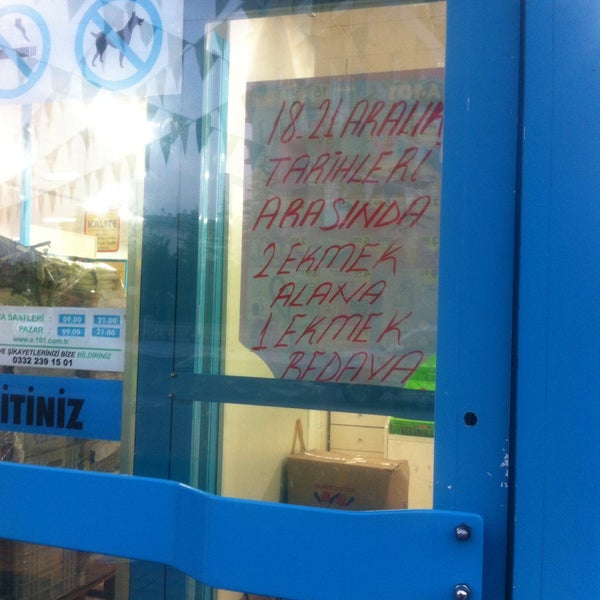 18_21 ARALIK
TARİHLERİ
ARASINDA
2 EKMEK
ALANA
1 EKMEK
BEDAVA
KALİTE
A SAATLERİ : 09.00 21.00
PAZAR : 09.00 21.00
www.a101.com.tr
VE ŞİKAYETLERİNİZİ BİZE BİLDİRİNİZ
0332 239 15 01
İTİNİZ